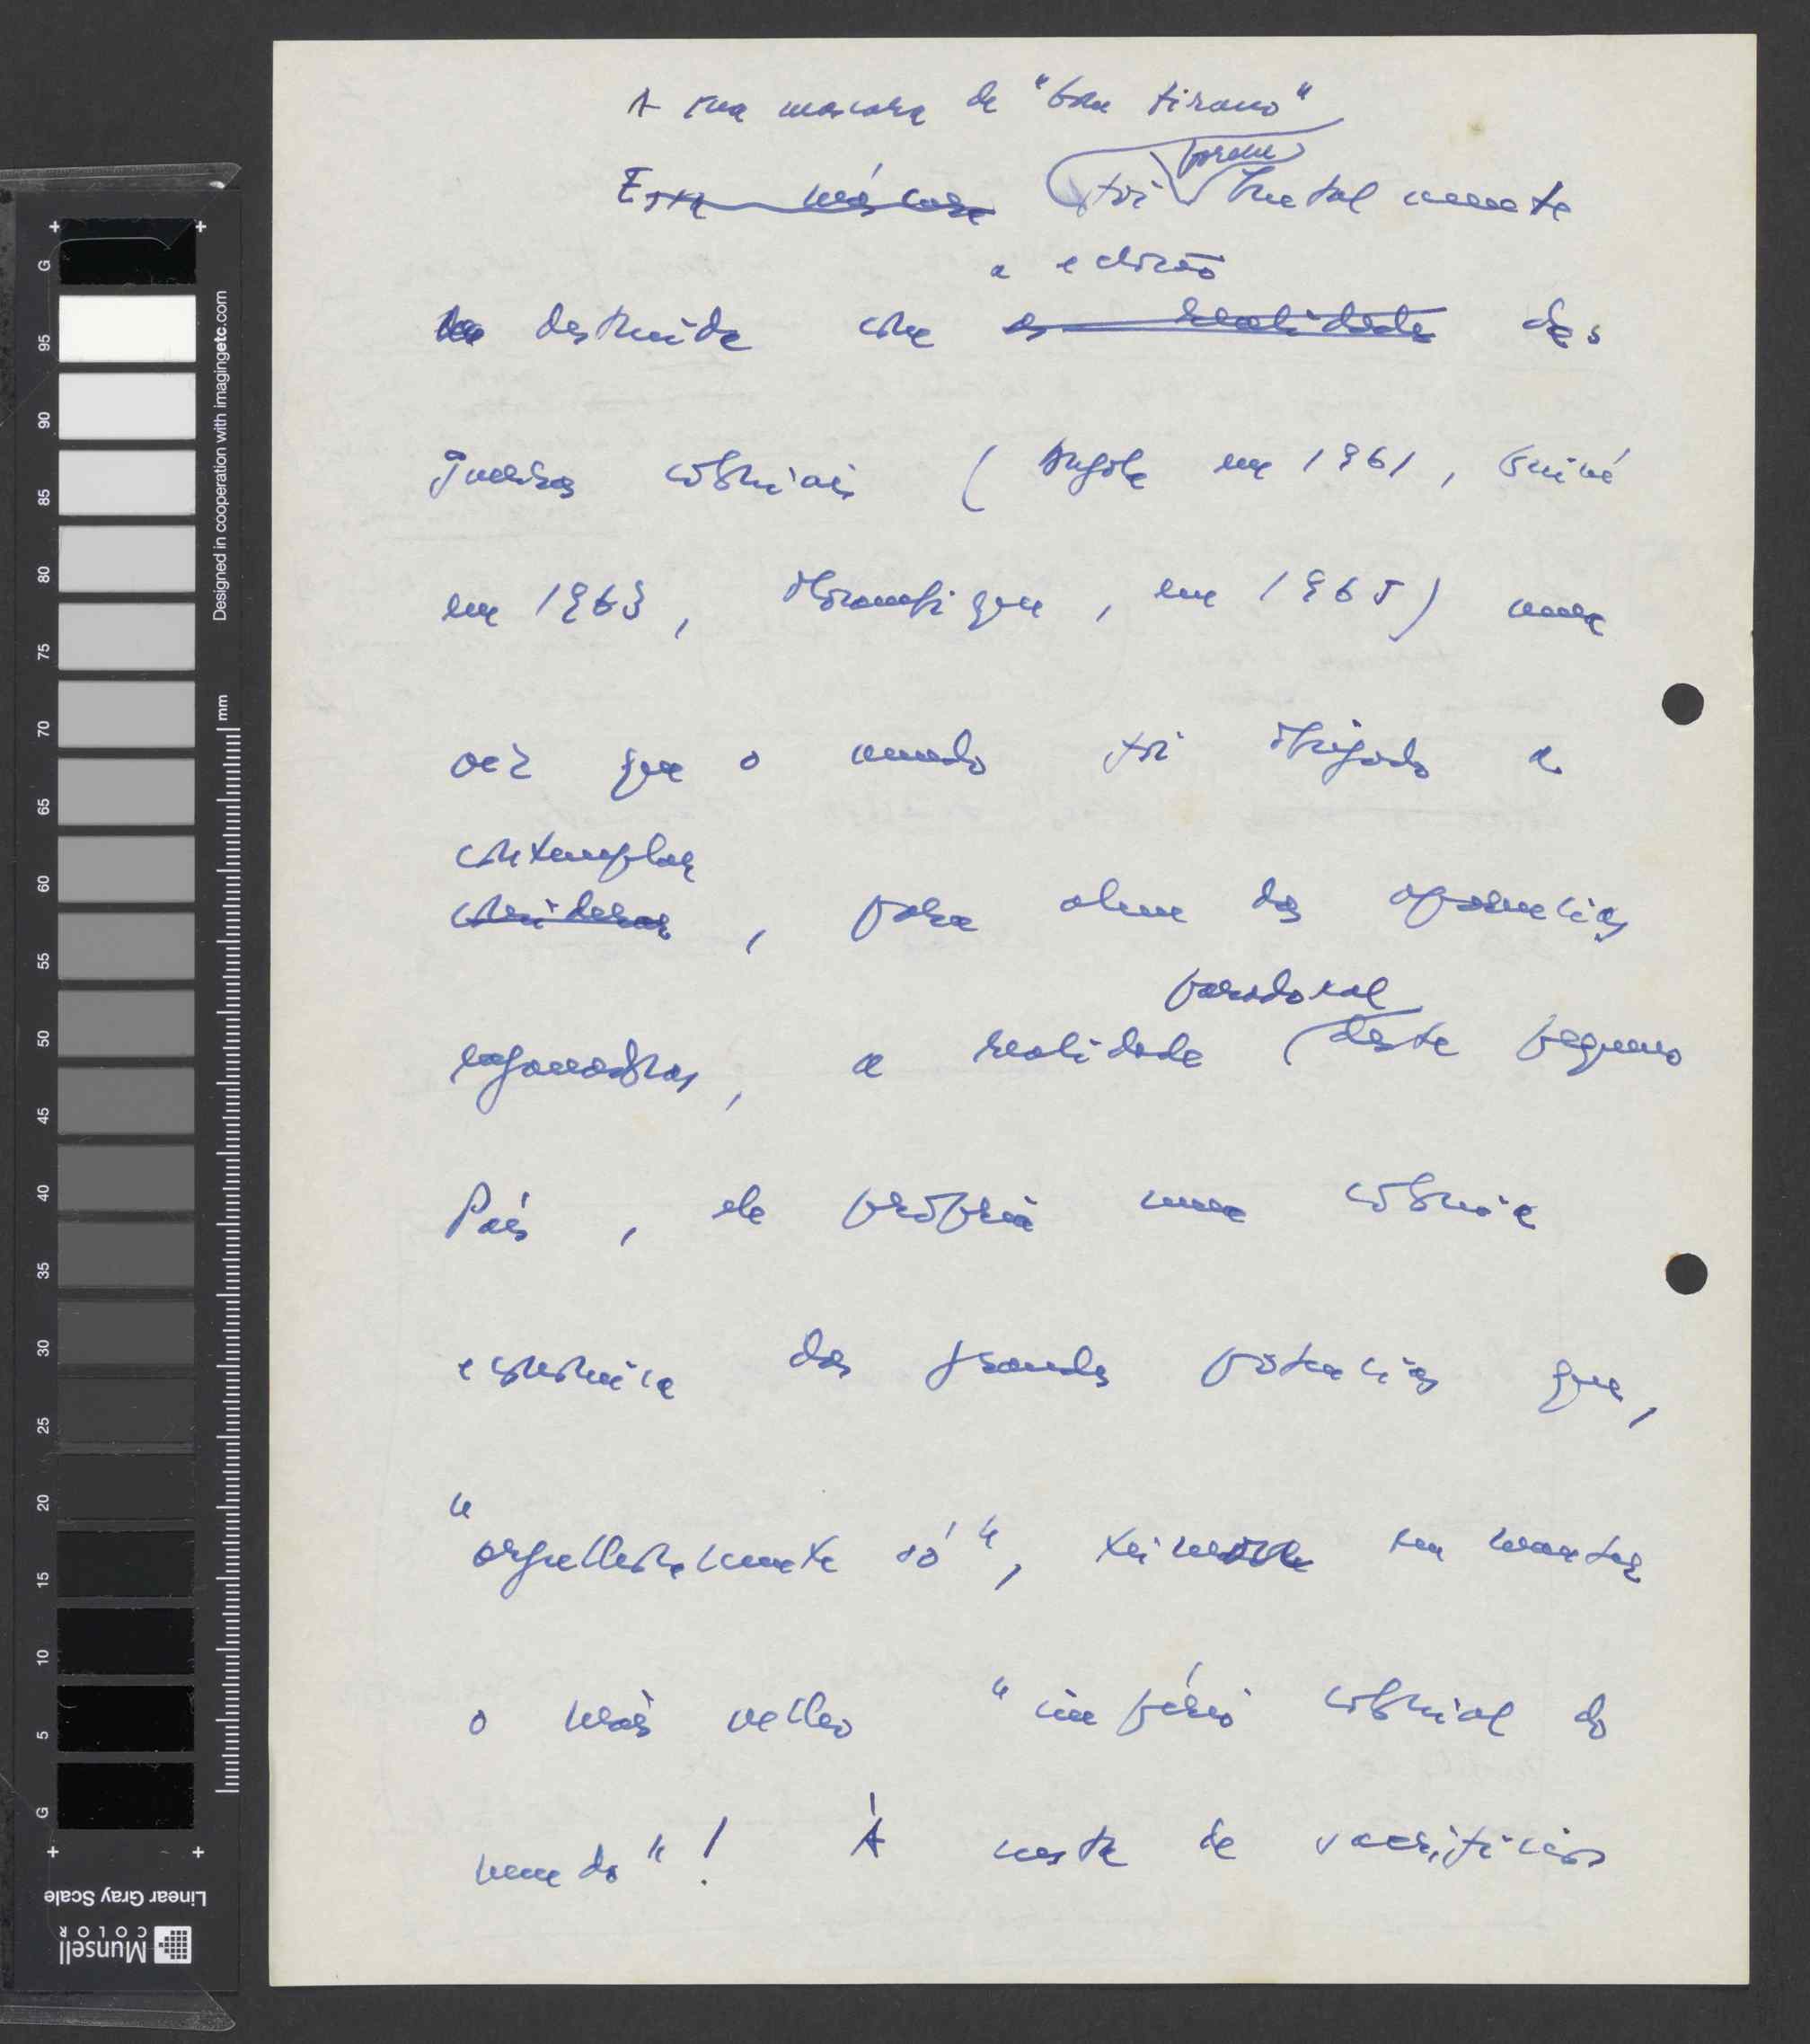 A sua mascara de "bom tirano"
porem
Essa máscara foi brutalmente
a eclosão
destruida com as realidades das
guerras coloniais (Angola em 1961, Guiné
em 1963, Moçambique, em 1965) uma
vez que o mundo foi obrigado a
contemplar
considerar, para alem das aparencias
enganadoras, a realidade deste pequeno
paradoxal
País, ele próprio uma colónia
económica das grandes potencias que,
"orgulhosamente só", teima em manter
o mais velho "império colonial do
mundo"! À custa de sacrifícios
G
95
90
85
80
75
70
65
60
55
50
45
40
35
30
25
20
15
10
5
G
mm
Designed in cooperation with imagingetc.com
Linear Gray Scale
Munsell
COLOR